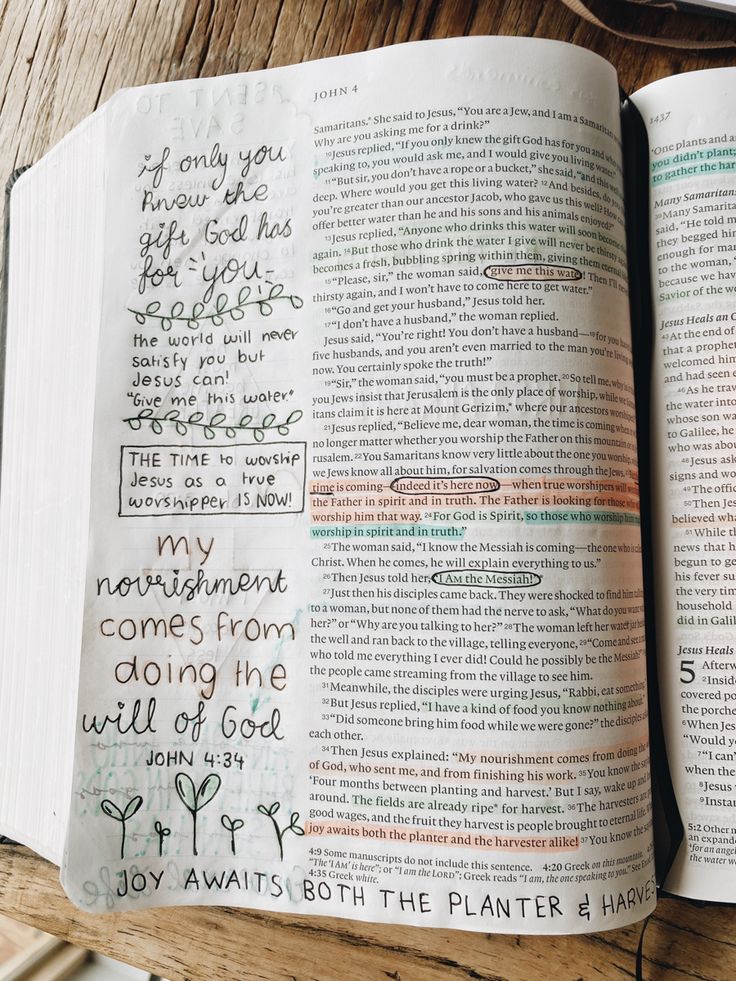 if only you
knew the
gift God has
for you-
the world will never
satisfy you but
Jesus can!
"Give me this water."
THE TIME to worship
Jesus as a true
worshipper IS NOW!
my
nourishment
comes from
doing the
will of God
JOHN 4:34
JOY AWAITS BOTH THE PLANTER & HARVES
JOHN 4
Samaritans.* She said to Jesus, "You are a Jew, and I am a Samaritan
Why are you asking me for a drink?"
10Jesus replied, "If you only knew the gift God has for you and
speaking to, you would ask me, and I would give you living water."
11"But sir, you don't have a rope or a bucket," she said, "and this
deep. Where would you get this living water? 12And besides, do
you're greater than our ancestor Jacob, who gave us this well? How
offer better water than he and his sons and his animals enjoyed?"
13Jesus replied, "Anyone who drinks this water will soon become
again. 14But those who drink the water I give will never be thirsty
becomes a fresh, bubbling spring within them, giving them eternal
15"Please, sir," the woman said, "give me this wate! Then I'll
thirsty again, and I won't have to come here to get water."
16"Go and get your husband," Jesus told her.
17"I don't have a husband," the woman replied.
Jesus said, "You're right! You don't have a husband—18for you
five husbands, and you aren't even married to the man you're
now. You certainly spoke the truth!"
19"Sir," the woman said, "you must be a prophet. 20So tell me, why
you Jews insist that Jerusalem is the only place of worship, while we
itans claim it is here at Mount Gerizim,* where our ancestors
21Jesus replied, "Believe me, dear woman, the time is coming when
no longer matter whether you worship the Father on this mountain
rusalem. 22You Samaritans know very little about the one you worship,
we Jews know all about him, for salvation comes through the Jews.
time is coming—indeed it's here now—when true worshipers will
the Father in spirit and in truth. The Father is looking for those
worship him that way. 24For God is Spirit, so those who worship him
worship in spirit and in truth."
25The woman said, "I know the Messiah is coming—the one who is
Christ. When he comes, he will explain everything to us."
26Then Jesus told her, "I Am the Messiah!"
27Just then his disciples came back. They were shocked to find him
to a woman, but none of them had the nerve to ask, "What do you want
her?" or "Why are you talking to her?" 28The woman left her water jar
the well and ran back to the village, telling everyone, 29"Come and see
who told me everything I ever did! Could he possibly be the Messiah?"
the people came streaming from the village to see him.
31Meanwhile, the disciples were urging Jesus, "Rabbi, eat something."
32But Jesus replied, "I have a kind of food you know nothing about."
33"Did someone bring him food while we were gone?" the disciples
each other.
34Then Jesus explained: "My nourishment comes from doing the
of God, who sent me, and from finishing his work. 35You know the
'Four months between planting and harvest.' But I say, wake up and
around. The fields are already ripe* for harvest. 36The harvesters are
good wages, and the fruit they harvest is people brought to eternal
joy awaits both the planter and the harvester alike! 37You know the
4:9 Some manuscripts do not include this sentence. 4:20 Greek on this mountain.
"The 'I AM' is here"; or "I am the LORD"; Greek reads "I am, the one speaking to you." See
4:35 Greek white.
1437
'One plants and
you didn't plant;
to gather the
Many Samaritans
39Many Samaritans
said, "He told
they begged him
enough for many
to the woman,
because we have
Savior of the
Jesus Heals an
43At the end of
that a prophet
welcomed him
and had seen
46As he
the water into
whose son was
to Galilee, he
who was about
48Jesus
signs and
49The
50Then
believed what
51While the
news that
begun to get
his fever
the very time
household
did in Galilee
Jesus Heals
5 Afterw
2Inside
covered
the porches
6When Jesus
"Would
7"I can't
when the
8Jesus
9Instan
5:2 Other
an expanded
for an angel
the water